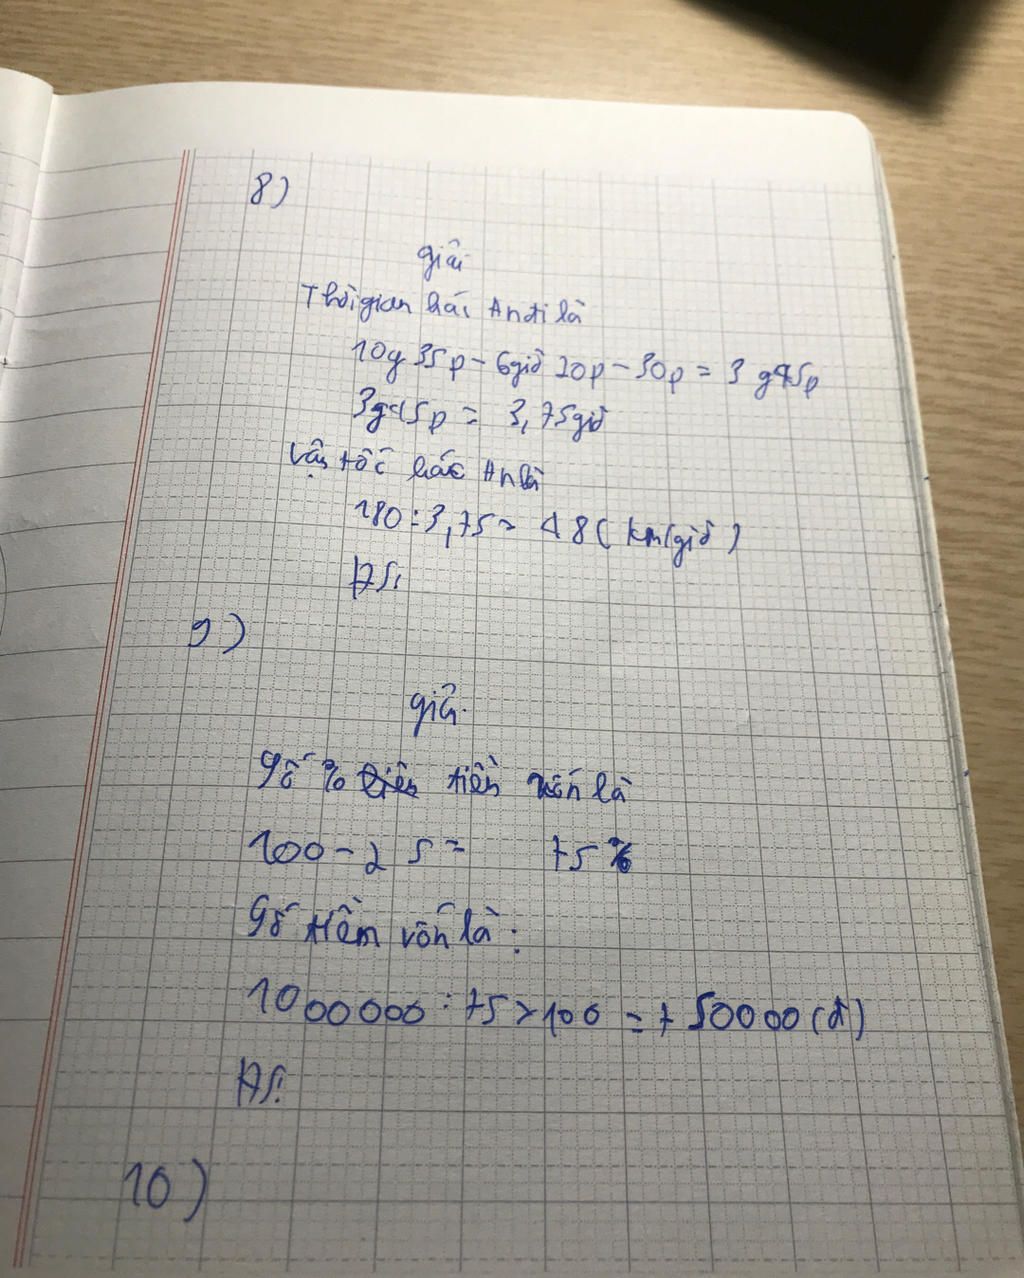 8)
giải
Thời gian bác An đi là
10g 35p - 6giờ 20p - 30p = 3 g45p
3g45p = 3,75giờ
Vận tốc bác An là
180 : 3,75 = 48 ( km/giờ )
ĐS:
9)
giải
Số % tiền vốn là
100 - 25 = 75 %
Số tiền vốn là :
1000000 : 75 x 100 = 750000 (đ)
ĐS:
10)